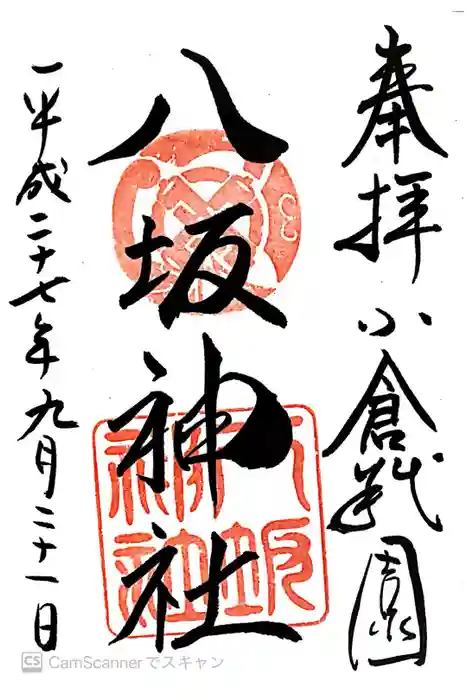 奉拝 小倉祇園
八坂神社
八坂神社
平成二十七年九月二十一日
CS CamScannerでスキャン